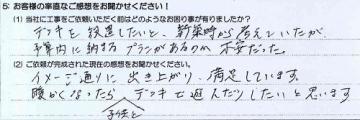 5: お客様の率直なご感想をお聞かせください!
(1) 当社に工事をご依頼いただく前はどのようなお困り事が有りましたか?
デッキを設置したいと、新築時から考えていたが、
予算内に納まるプランがあるのか 不安だった。
(2) ご依頼が完了された現在の感想をお聞かせください。
イメージ通りに 出き上がり、満足しています。
暖かくなったら、デッキで遊んだりしたいと思います
子供と